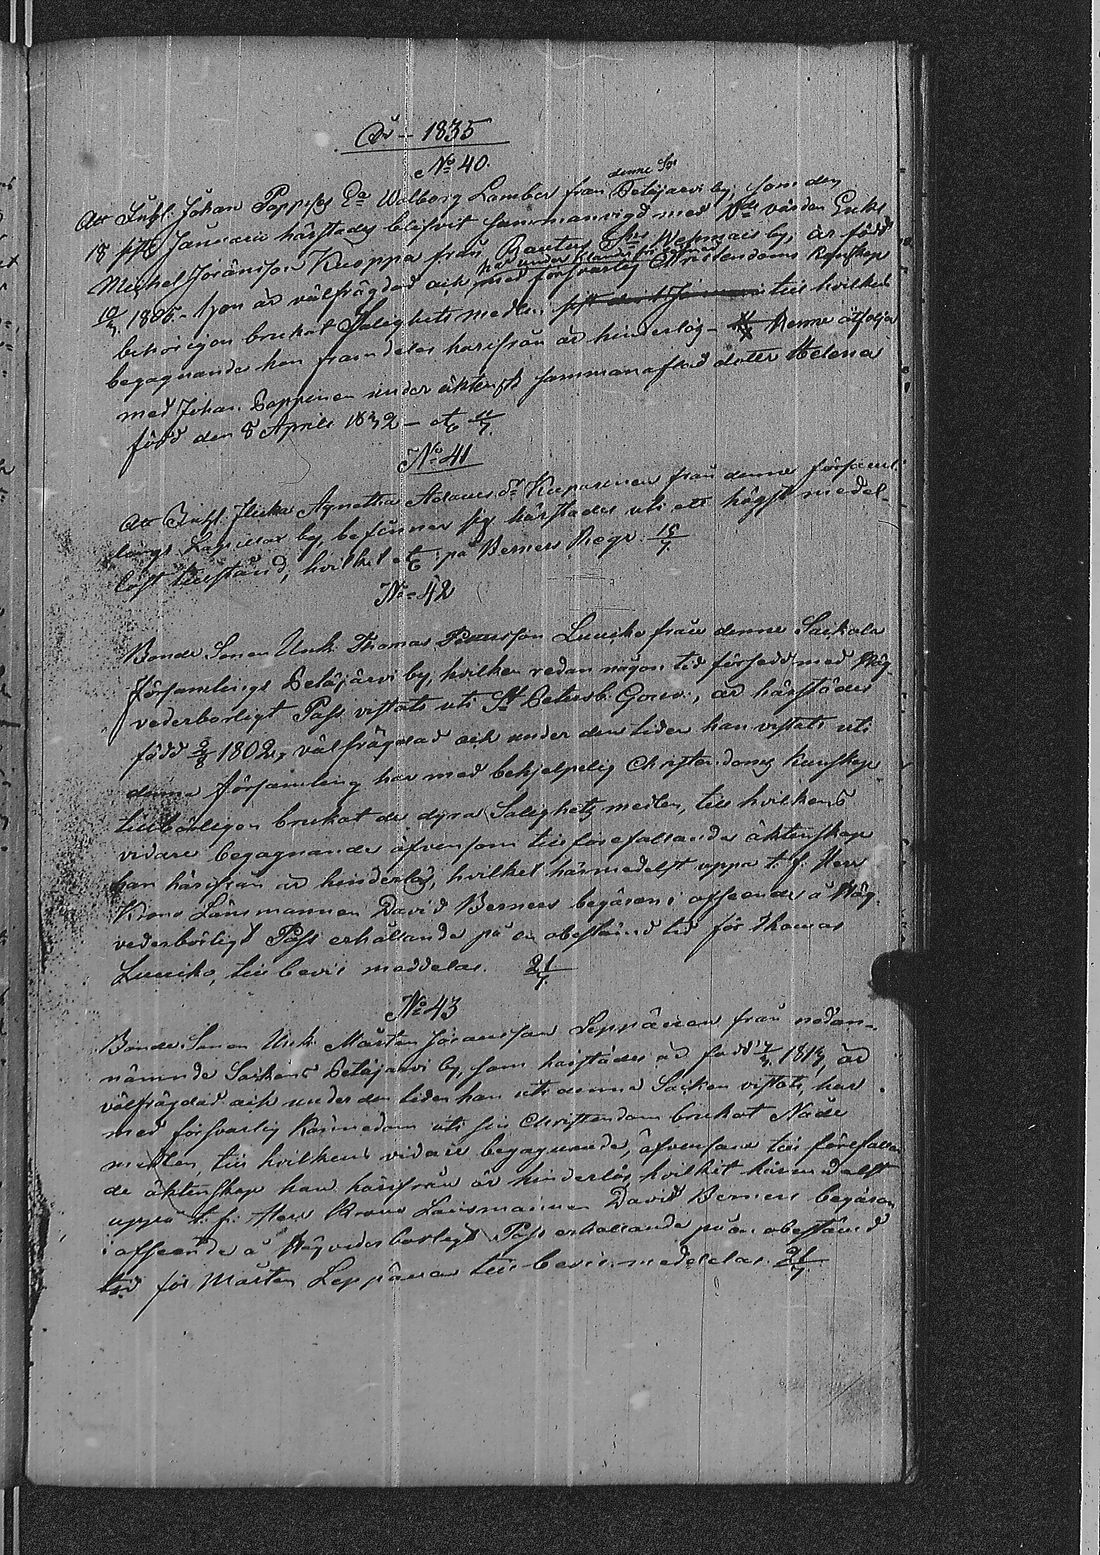 År - 1835
No 40.
denne So
Att Inhl. Johan Poppis Da Walborg Lamber från Petäjärvi by, som den
18 sistl. Januarii härstädes blifvit sammanvigd med Enkl.
Michel Jöransson Kuoppa från by, är född
1805 - hon är välfrägdad och med försvarlig Christendoms kunskap
behörigen brukat Salighets medlen till hvilkas
begagnande hon framdeles härifrån är hinderlös - Henne åtföljer
med Johan Poppinen under äktenskap sammanaflad doter Helena
född den 8 Aprill 1832 -
No 41
Att Inhl. flicka Agnetha Adams dr från denne församl
lings by, befinner sig härstädes uti ett högst medel-
löst tillstånd, hvilket på Berners Begr. 15/7
No 42
Bonde Sonen Unk. Thomas Lunniko från denne Sackola
församlings Petäjärvi by, hvilken redan någon tid försedd med Hög-
vederbörligt Pass vistats uti St Petersb. Gouv:, är härstädes
född 1802, välfrägdad och under den tiden han vistats uti
denna församling har med behjelpelig Christendoms kunskap
tillbörligen brukat de dyra Salighets medlen, till hvilkens
vidare begagnande äfvensom till förefallande äktenskap
han härifrån är hinderlös, hvilket härmedelst uppå t. f. Herr
Krono Länsmannen David Berners begäran i afseende å Hög-
vederbörligt Pass erhållande på en obestämd tid för Thomas
Lunniko, till bevis meddelas. 21/7.
No 43
Bonde Sonen Unk. Mårten Jöransson Leppänen från nedan-
nämnde Sockens Petäjärvi by, som härstädes är född 1813, är
välfrägdad och under den tiden han uti denna Socken vistats har
med försvarlig kännedom uti sin Christendom brukat Nåde
medlen, till hvilkens vidare begagnande, äfvensom till förefallan
de äktenskap han härifrån är hinderlös, hvilket härmedelst
uppå t. f. Herr Krono Länsmannen David Berners begäran
i afseende å Högvederbörligt Pass erhållande på en obestämd
tid för Mårten Leppänen till bevis meddelas. 21/7